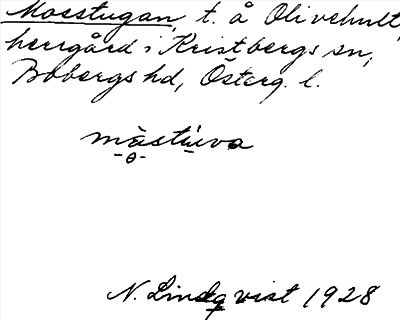 Mosstugan, t. å Olivehult,
herrgård i Kristbergs sn,
Bobergs hd, Österg. l.
måstùva
N. Lindqvist 1928